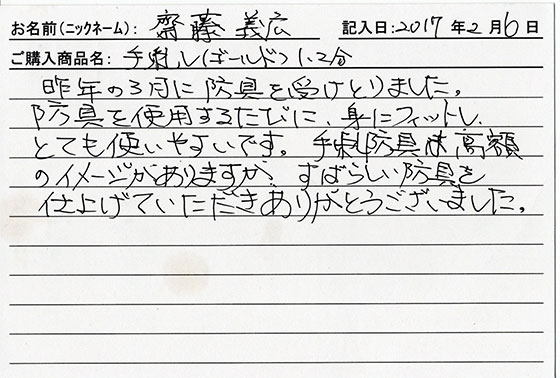 お名前(ニックネーム): 齋藤 義広 記入日:2017年2月6日
ご購入商品名: 手刺し(ゴールド)1.2分
昨年の3月に防具を受けとりました。
防具を使用するたびに、身にフィットし、
とても使いやすいです。手刺防具は高額
のイメージがありますが、すばらしい防具を
仕上げていただきありがとうございました。